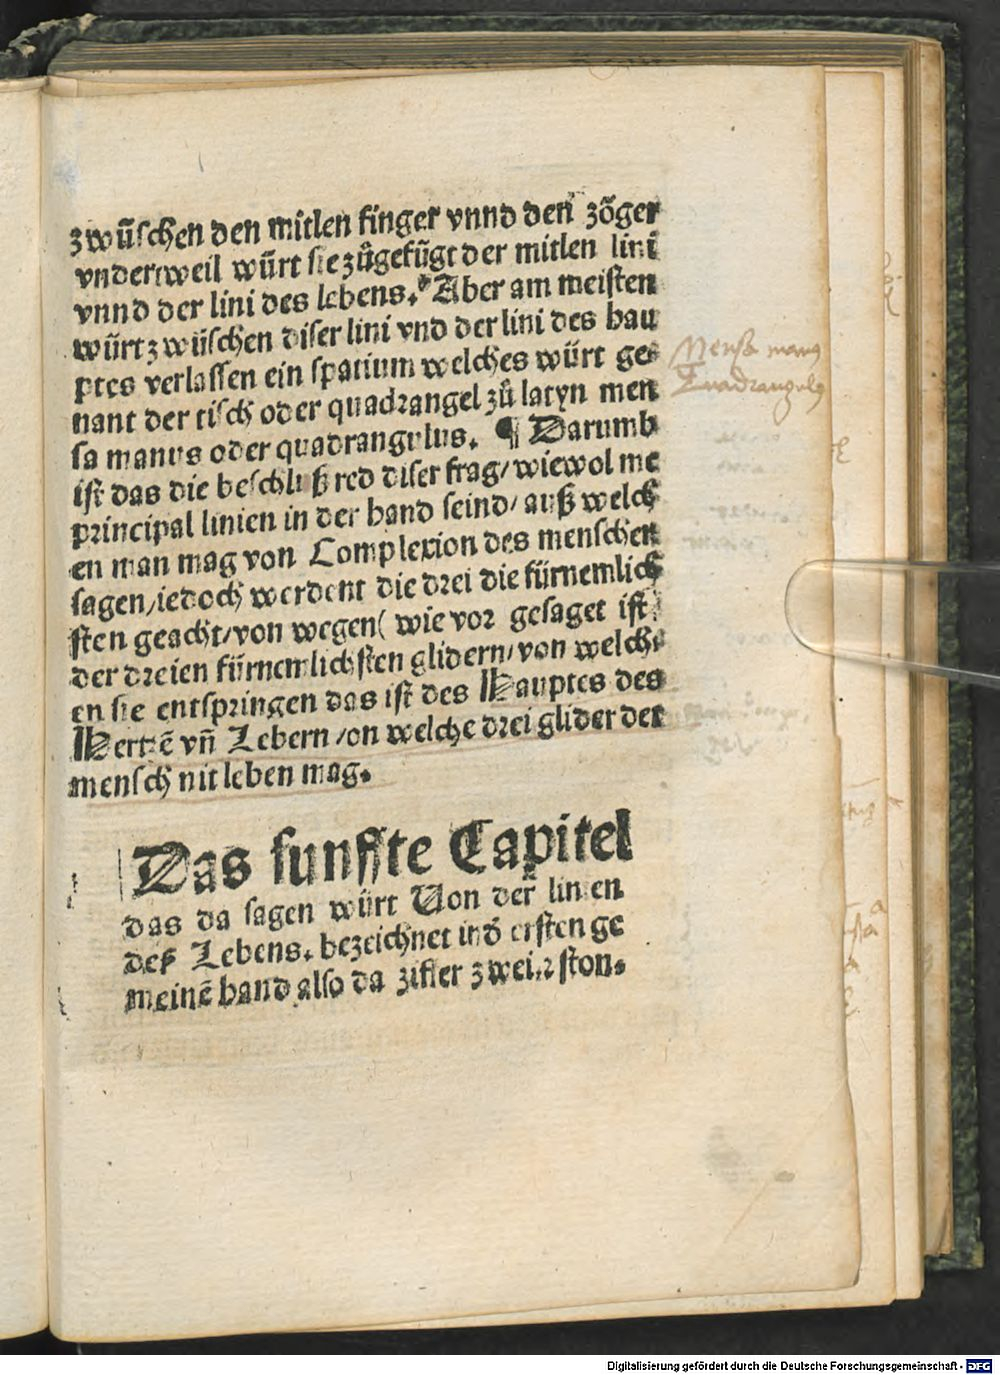 zwüschen den mitlen finger vnnd den zöger
vnderweil würt sie zůgefügt der mitlen lini
vnnd der lini des lebens. Aber am meisten
würt zwüschen diser lini vnd der lini des hau
ptes verlassen ein spatium welches würt ge⸗
nant der tisch oder quadrangel zů latyn men
sa manus oder quadrangulus. ¶ Darumb
ist das die beschlußred diser frag/ wiewol me
principal linien in der hand seind/ auß welch
en man mag von Complexion des menschen
sagen/ iedoch werdent die drei die fürnemlich
sten geacht/ von wegen ( wie vor gesaget ist
der dreien fürnemlichsten glidern/ von welch⸗
en sie entspringen das ist des Hauptes des
Hertzē vñ Lebern /on welche drei glider der
mensch nit leben mag.
Mensa manus
Quadrangulus
Das funffte Capitel
das da sagen würt Von der linien
deß Lebens. bezeichnet in ersten ge
meinē hand also da ziffer zwei ston.
Digitalisierung gefördert durch die Deutsche Forschungsgemeinschaft - DFG